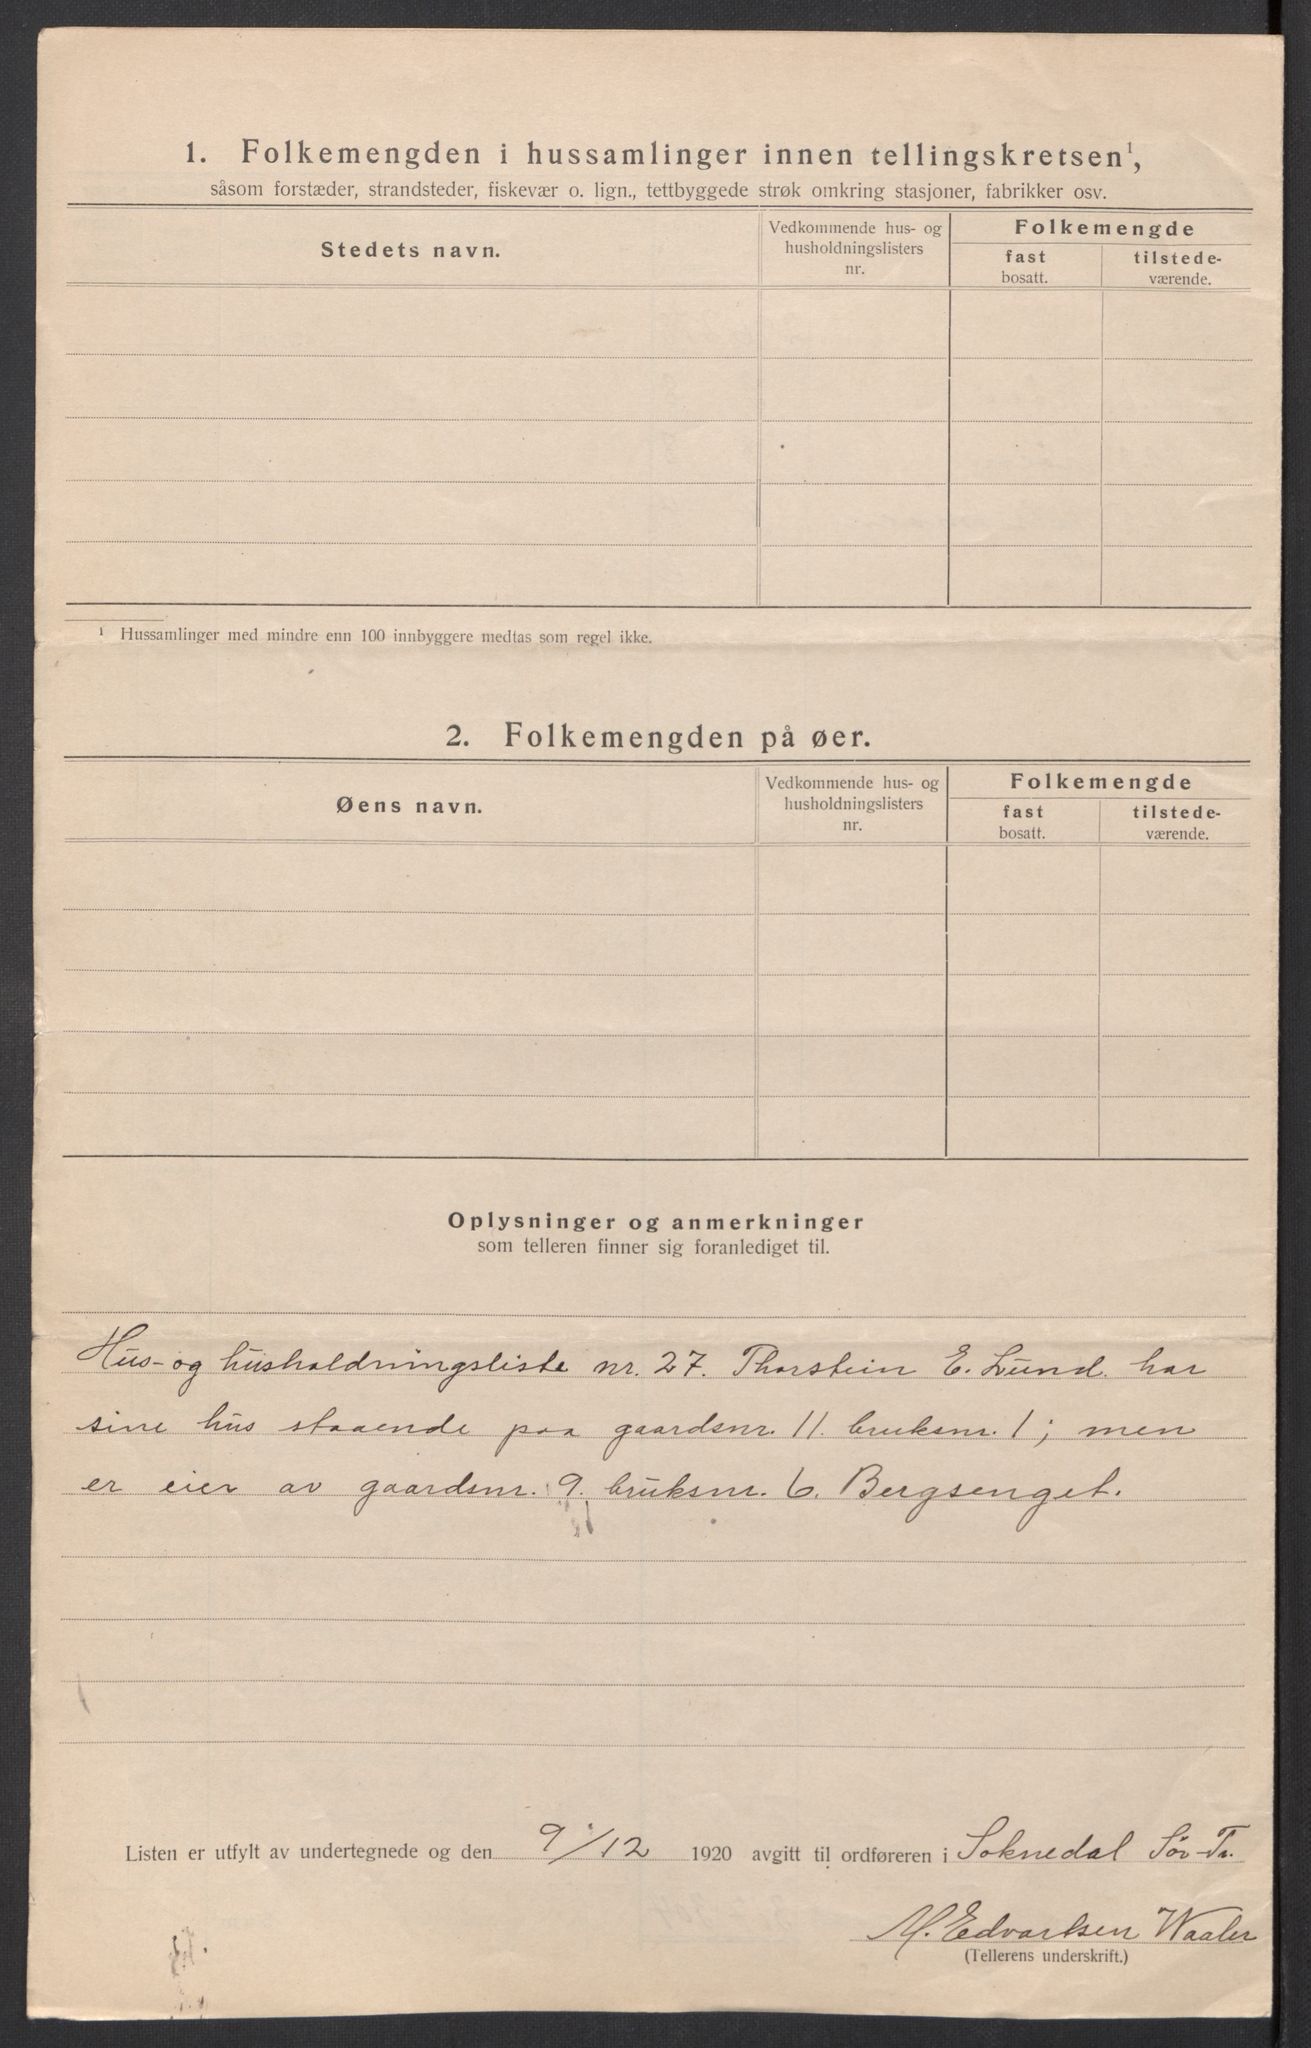 1. Folkemengden i hussamlinger innen tellingskretsen¹,
såsom forstæder, strandsteder, fiskevær o. lign., tettbyggede strøk omkring stasjoner, fabrikker osv.
Stedets navn.
Vedkommende hus- og
husholdningslisters
nr.
Folkemengde
fast
bosatt.
tilstede-
værende.
¹ Hussamlinger med mindre enn 100 innbyggere medtas som regel ikke.
2. Folkemengden på øer.
Øens navn.
Vedkommende hus- og
husholdningslisters
nr.
Folkemengde
fast
bosatt.
tilstede-
værende.
Oplysninger og anmerkninger
som telleren finner sig foranlediget til.
Hus- og husholdningsliste nr. 27. Thorstein E. Lund. har
sine hus staaende paa gaardsnr. 11. bruksnr. 1; men
er eier av gaardsnr. 9. bruksnr. 6. Bergsenget.
Listen er utfylt av undertegnede og den 9/12 1920 avgitt til ordføreren i Soknedal Sør-Tr.
M. Edvartsen Waaler
(Tellerens underskrift.)